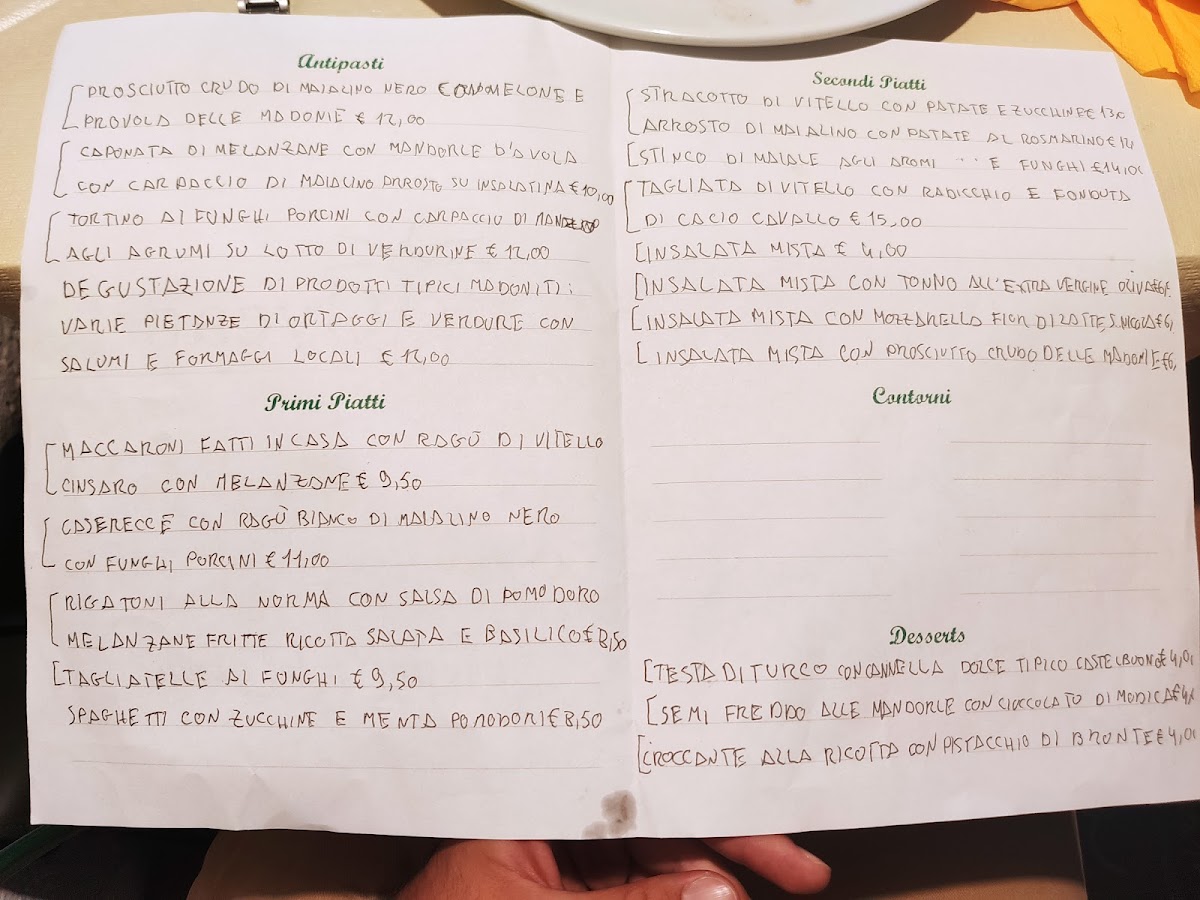 Antipasti
PROSCIUTTO CRUDO DI MAIALINO NERO CON MELONE E
PROVOLA DELLE MADONIE € 12,00
CAPONATA DI MELANZANE CON MANDORLE D'AVOLA
CON CARPACCIO DI MAIALINO ARROSTO SU INSALATINA € 10,00
TORTINO AI FUNGHI PORCINI CON CARPACCIO DI MANZO
AGLI AGRUMI SU LOTTO DI VERDURINE € 12,00
DEGUSTAZIONE DI PRODOTTI TIPICI MADONITI:
VARIE PIETANZE DI ORTAGGI E VERDURE CON
SALUMI E FORMAGGI LOCALI € 12,00
Primi Piatti
MACCARONI FATTI IN CASA CON RAGÙ DI VITELLO
CINSARO CON MELANZANE € 9,50
CASERECCE CON RAGÙ BIANCO DI MAIALINO NERO
CON FUNGHI PORCINI € 11,00
RIGATONI ALLA NORMA CON SALSA DI POMODORO
MELANZANE FRITTE RICOTTA SALATA E BASILICO € 8,50
TAGLIATELLE AI FUNGHI € 9,50
SPAGHETTI CON ZUCCHINE E MENTA POMODORI € 8,50
Secondi Piatti
STRACOTTO DI VITELLO CON PATATE E ZUCCHINE € 13,0
ARROSTO DI MAIALINO CON PATATE AL ROSMARINO €
STINCO DI MAIALE AGLI AROMI E FUNGHI € 14,00
TAGLIATA DI VITELLO CON RADICCHIO E FONDUTA
DI CACIO CAVALLO € 15,00
INSALATA MISTA € 4,00
INSALATA MISTA CON TONNO ALL'EXTRA VERGINE OLIVA € 6,
INSALATA MISTA CON MOZZARELLA FIOR DI LATTE S. NICOLA € 6,
INSALATA MISTA CON PROSCIUTTO CRUDO DELLE MADONIE € 6,
Contorni
Desserts
TESTA DI TURCO CON CANNELLA DOLCE TIPICO CASTELBUONO € 4,0
SEMI FREDDO ALLE MANDORLE CON CIOCCOLATO DI MODICA € 4,
CROCCANTE ALLA RICOTTA CON PISTACCHIO DI BRONTE € 4,00